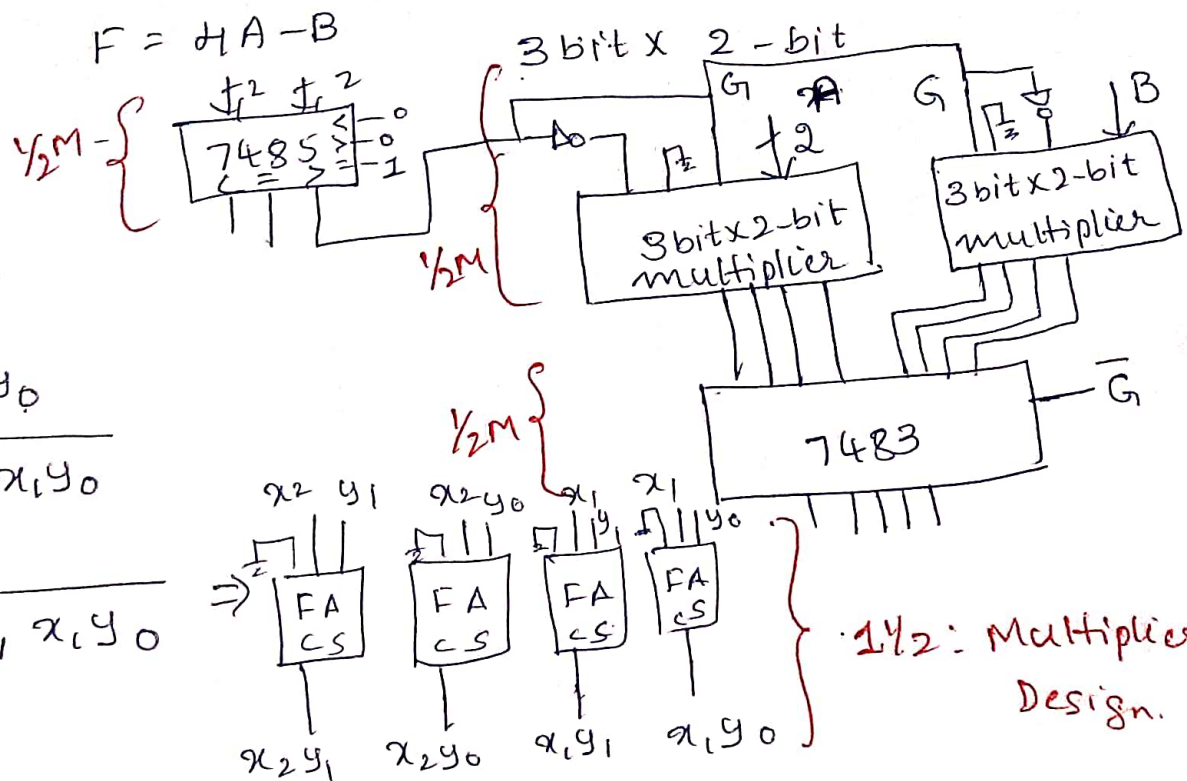 F = 4A - B
3 bit x 2 - bit
2 2
½M
7485
< - 0
> - 0
= - 1
< = >
G A G
B
2
½M
3bitx2-bit
multiplier
3bitx2-bit
multiplier
½M
7483
G̅
y0
x1y0
x1y0
x2 y1 x2 y0 x1 y1 x1 y0
⇒ FA FA FA FA
CS CS CS CS
x2y1 x2y0 x1y1 x1y0
1½: Multiplier
Design.